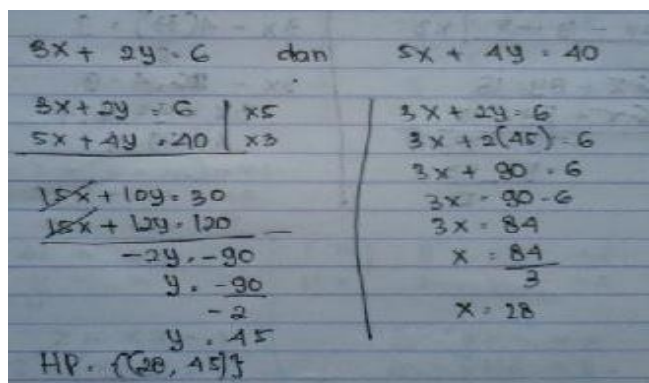 3x + 2y = 6 dan 5x + 4y = 40
3x + 2y = 6 | x5
5x + 4y = 40 | x3
15x + 10y = 30
15x + 12y = 120 —
-2y = -90
y = -90
-2
y = 45
HP = {(28, 45)}
3x + 2y = 6
3x + 2(45) = 6
3x + 90 = 6
3x = 90 - 6
3x = 84
x = 84
3
x = 28